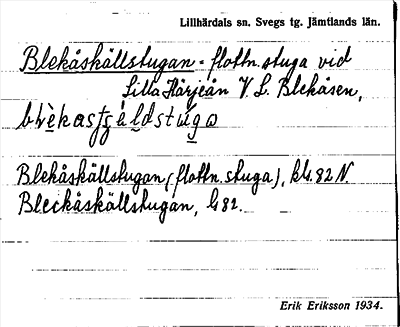 Lillhärdals sn. Svegs tg. Jämtlands län.
Blekåskällstugan - flottn. stuga vid
Lilla Härjeån V. L. Blekåsen,
Blekåskällstugan (flottn. stuga), kG. 82 N.
Bleckåskällstugan, G 82.
Erik Eriksson 1934.